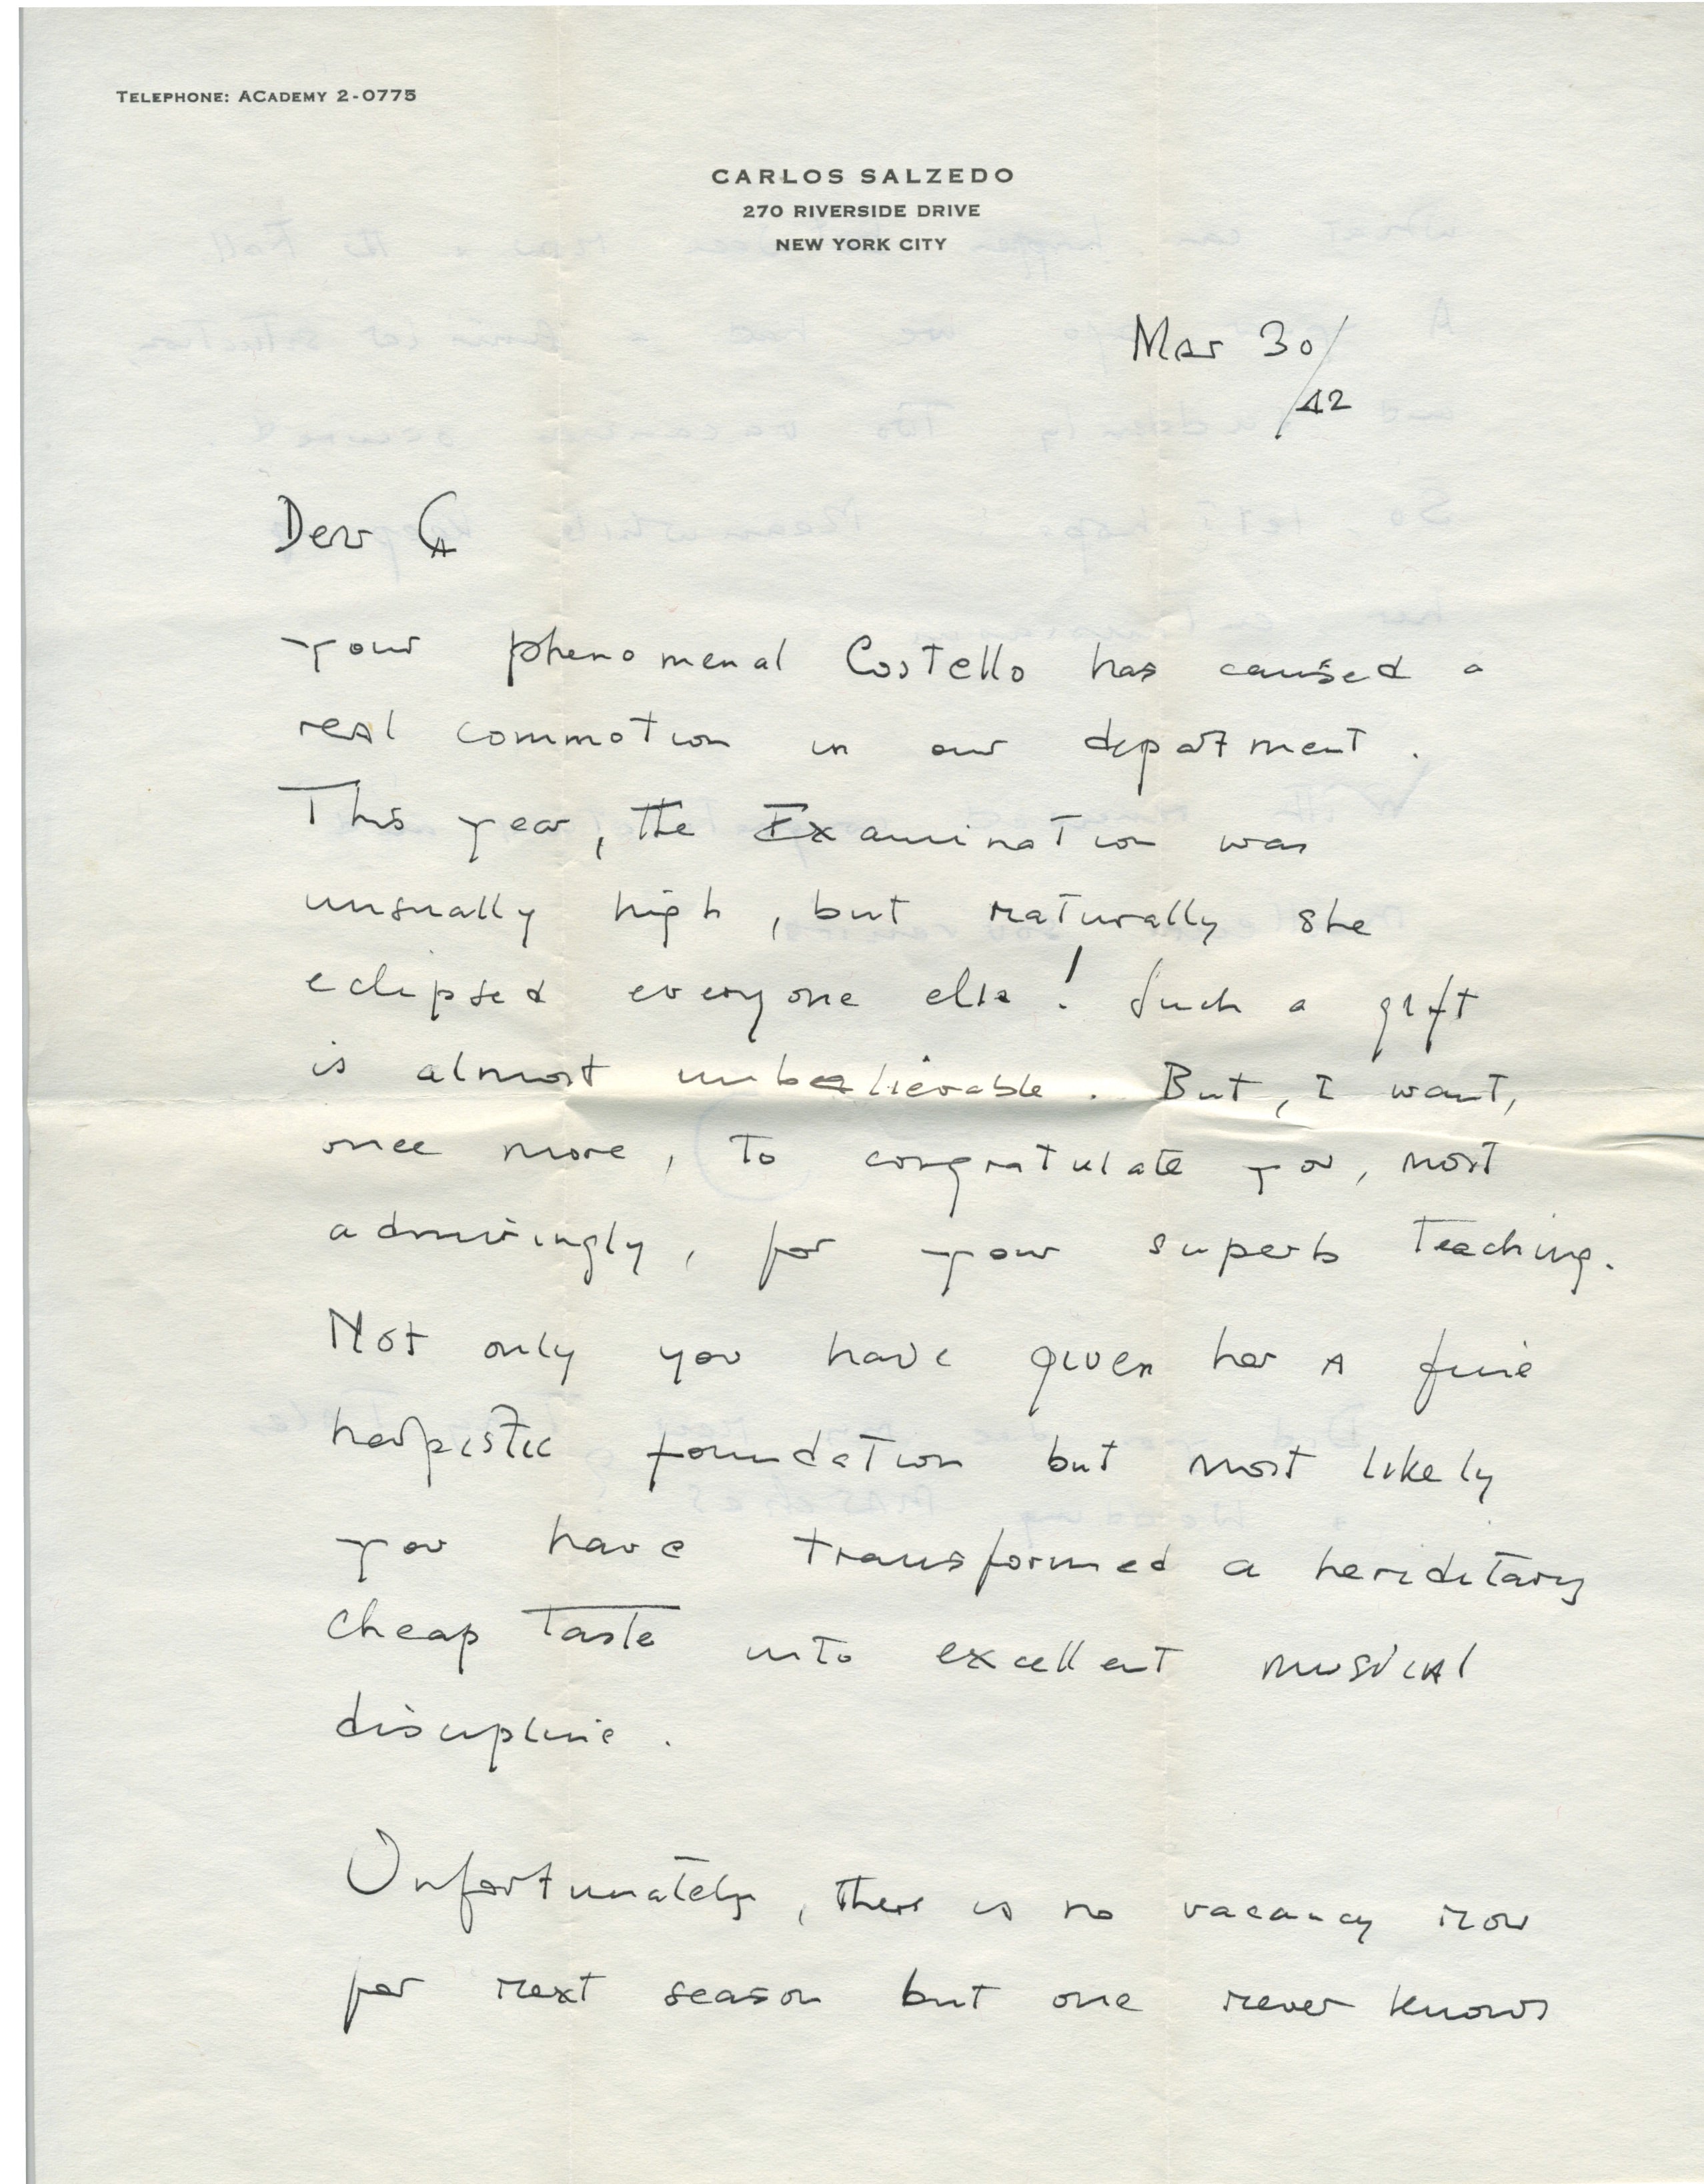 TELEPHONE: ACADEMY 2-0775
CARLOS SALZEDO
270 RIVERSIDE DRIVE
NEW YORK CITY
Mar 30/
42
Dear CA
your phenomenal Costello has caused a
real commotion in our department.
This year, the Examination was
unsually high, but naturally she
eclipsed everyone else! Such a gift
is almost unbelievable. But, I want,
once more, to congratulate you, most
admiringly, for your superb teaching.
Not only you have given her A fine
harpistic foundation but most likely
you have transformed a hereditary
cheap taste into excellent musical
discipline.
Unfortunately, there is no vacancy now
for next season but one never knows